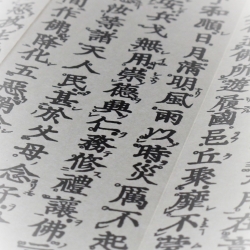 所遊履國邑丘聚靡不蒙
和順日月清明風雨以時災厲不起
兵戈無用崇德興仁務修禮讓佛
汝等諸天人民甚於父母念子
間作佛降化五惡消